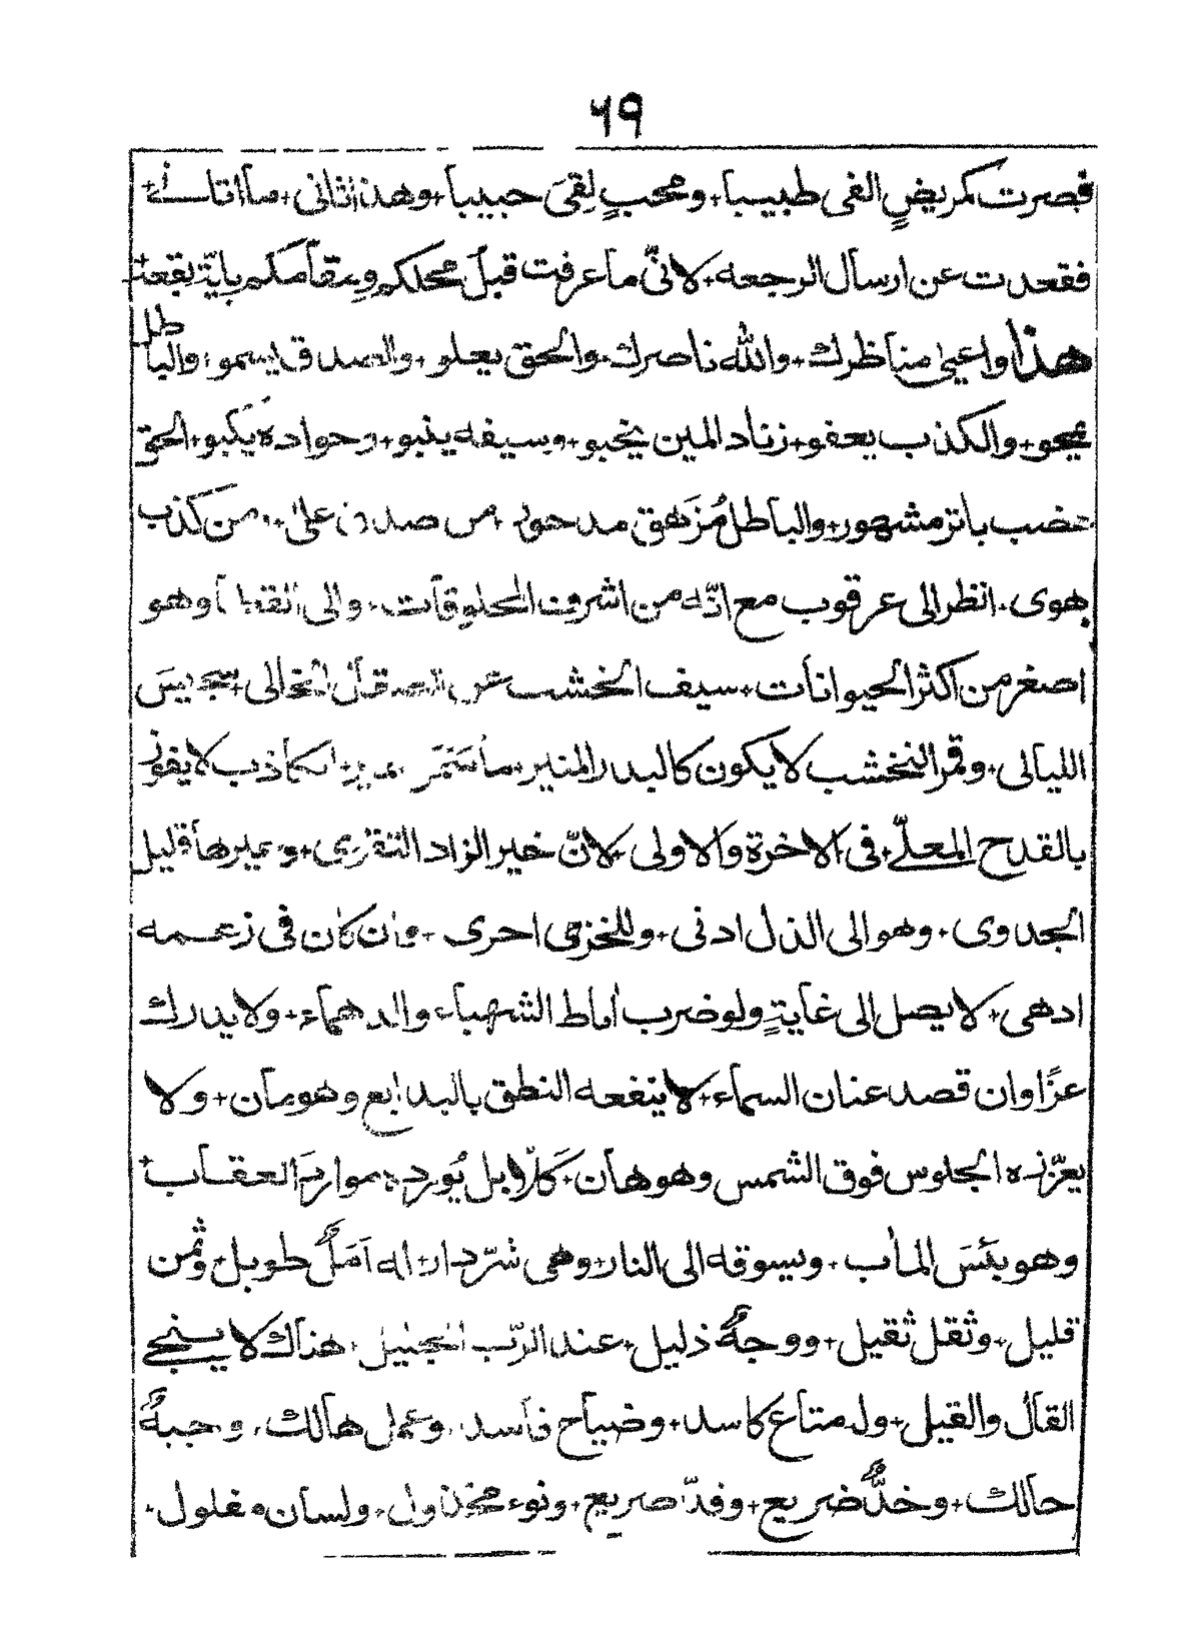 ٦٩
فصرت كمريضٍ الفى طبيبا + ومحبٍ لِقىَ حبيباً + وهذا ثانى + ما اتانے +
فقعدت عن ارسال الرجعه + لانّى ما عرفت قبل محلكم ومقامكم باية بقعة +
هذا واعيى مناظرك + والله ناصرك + والحق يعلو + والصدق يسمو + والباطل
يمحو + والكذب يعفو + زناد المين يخبو + وسيفه ينبو + وجواده يَكبو + الحق
عضب باتر مشهور + والباطل مُزَهق مدحور + من صدق على + ومن كذب
هوى + انظر الى عرقوب مع انّه من اشرف المخلوقات + والى وهو
اصغر من اكثر الحيوانات + سيف الخشب عن
الليالى + وقمر النخشب لا يكون كالبدر المنير + الكاذب لا يفوز
بالقدح المعلّے + فى الاخرة والاولى + لانّ خير الزاد التقوى + وغيرها قليل
الجدوى + وهو الى الذل ادنى + وللخزى احرى + وان كان فى زعمه
ادهى + لا يصل الى غايةٍ ولو ضرب اٰباط الشهباء والدهماء + ولا يدرك
عزًّا وان قصد عنان السماء + لا ينفعه النطق بالبدايع وهو مان + ولا
يعزّزه الجلوس فوق الشمس وهو هان + كَلّا بل يُورده مواردَ العقاب +
وهو بئسَ الماٰب + ويسوقه الى النار + وهى شرّ دار + له اَمَلٌ طويل + وثمن
قليل + وثقل ثقيل + ووجهٌ ذليل + عند الرّب الجليل + هناك لا ينجے
القال والقيل + وله متاع كاسد + وضياح فاسد + وعمل هالك + وجبهةٌ
حالك + وخدٌّ ضريع + وقدّ صريع + ونوء مخذول + ولسان مفلول +